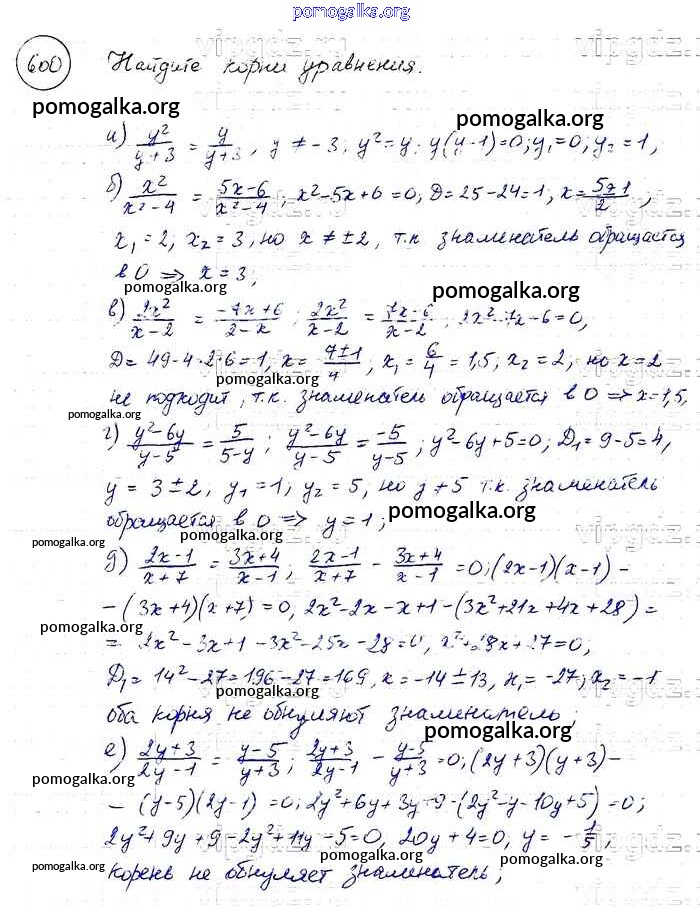 pomogalka.org
600 Найдите корни уравнения.
pomogalka.org pomogalka.org
а) y²/(y+3) = y/(y+3), y ≠ -3; y² = y; y(y-1)=0; y₁=0; y₂=1,
б) x²/(x²-4) = (5x-6)/(x²-4); x²-5x+6=0, D=25-24=1, x=(5±1)/2;
x₁=2, x₂=3, но x≠±2, т.к знаменатель обращается
в 0 ⇒ x=3;
pomogalka.org pomogalka.org
в) 2x²/(x-2) = (-7x+6)/(2-x); 2x²/(x-2) = (7x-6)/(x-2); 2x² 7x-6=0,
D=49-4·2·6=1, x=(7±1)/4, x₁=6/4=1,5, x₂=2, но x=2
pomogalka.org
не подходит, т.к. знаменатель обращается в 0 ⇒ x=1,5,
pomogalka.org
г) (y²-6y)/(y-5) = 5/(5-y); (y²-6y)/(y-5) = -5/(y-5); y²-6y+5=0; D₁=9-5=4,
y=3±2, y₁=1; y₂=5, но y≠5 т.к. знаменатель
обращается в 0 ⇒ y=1;
pomogalka.org
pomogalka.org pomogalka.org
д) (2x-1)/(x+7) = (3x+4)/(x-1); (2x-1)/(x+7) - (3x+4)/(x-1) =0; (2x-1)(x-1)-
-(3x+4)(x+7)=0, 2x²-2x-x+1-(3x²+21x+4x+28)=
pomogalka.org
= 2x²-3x+1-3x²-25x-28=0, x²+28x+27=0;
D₁=14²-27=196-27=169, x=-14±13, x₁=-27; x₂=-1
pomogalka.org
оба корня не обнуляют знаменатель;
pomogalka.org
е) (2y+3)/(2y-1) = (y-5)/(y+3); (2y+3)/(2y-1) - (y-5)/(y+3) =0, (2y+3)(y+3)-
pomogalka.org
-(y-5)(2y-1)=0; 2y²+6y+3y+9-(2y²-y-10y+5)=0;
2y²+9y+9-2y²+11y-5=0, 20y+4=0, y=-1/5;
pomogalka.org pomogalka.org pomogalka.org
корень не обнуляет знаменатель;